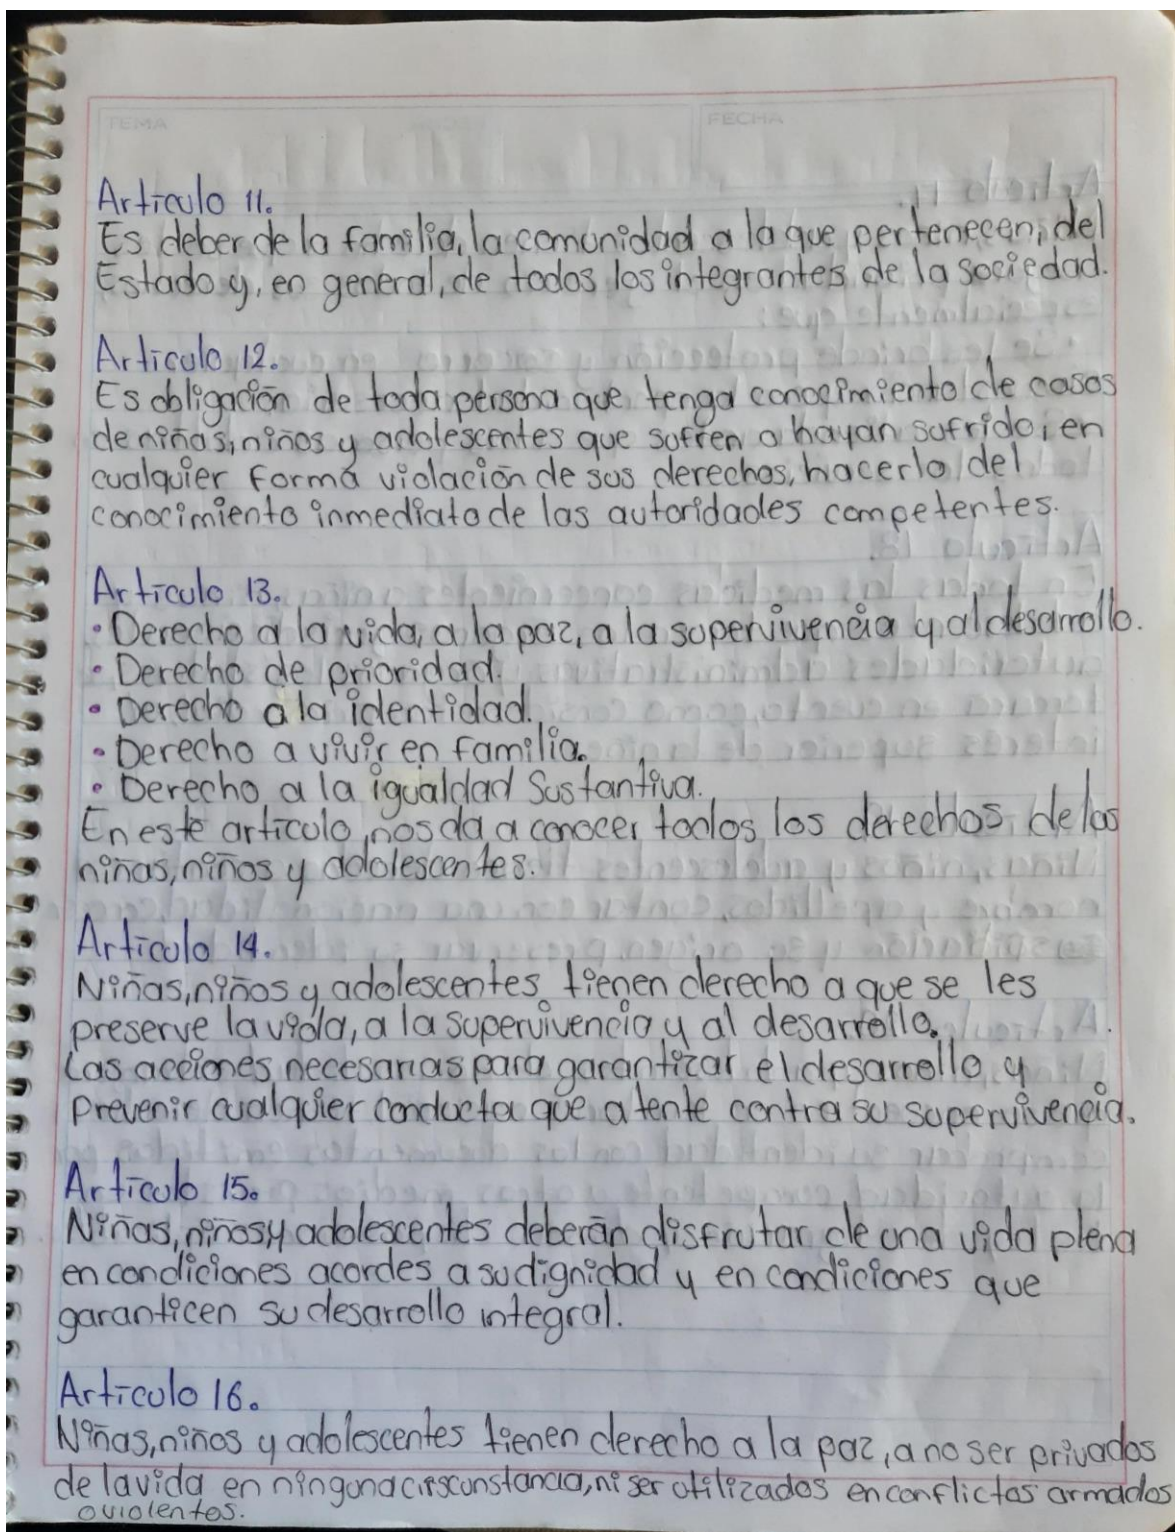 TEMA
FECHA
Artículo 11.
Es deber de la familia, la comunidad a la que pertenecen, del
Estado y, en general, de todos los integrantes de la sociedad.
Artículo 12.
Es obligación de toda persona que tenga conocimiento de casos
de niñas, niños y adolescentes que sufren o hayan sufrido, en
cualquier forma violación de sus derechos, hacerlo del
conocimiento inmediato de las autoridades competentes.
Artículo 13.
• Derecho a la vida, a la paz, a la supervivencia y al desarrollo.
• Derecho de prioridad.
• Derecho a la identidad.
• Derecho a vivir en familia.
• Derecho a la igualdad Sustantiva.
En este artículo, nos da a conocer todos los derechos de las
niñas, niños y adolescentes.
Artículo 14.
Niñas, niños y adolescentes tienen derecho a que se les
preserve la vida, a la supervivencia y al desarrollo.
Las acciones necesarias para garantizar el desarrollo y
prevenir cualquier conducta que atente contra su supervivencia.
Artículo 15.
Niñas, niños y adolescentes deberán disfrutar de una vida plena
en condiciones acordes a su dignidad y en condiciones que
garanticen su desarrollo integral.
Artículo 16.
Niñas, niños y adolescentes tienen derecho a la paz, a no ser privados
de la vida en ninguna cirsconstancia, ni ser utilizados en conflictos armados
o violentos.